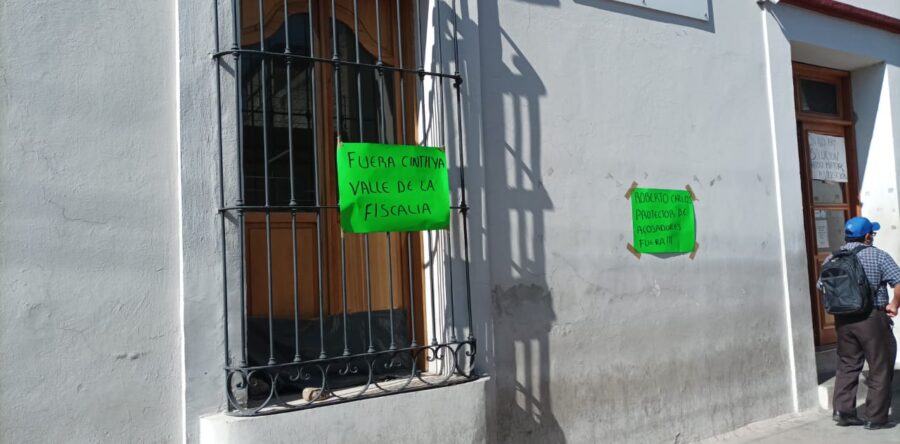 FUERA CINTHYA
VALLE DE LA
FISCALIA
ROBERTO CARLOS
PROTECTOR DE
ACOSADORES
FUERA!!!
SOLUCION